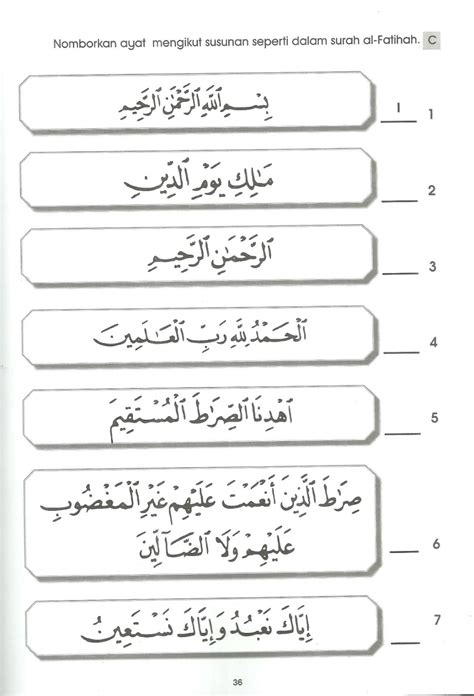 Nomborkan ayat mengikut susunan seperti dalam surah al-Fatihah. C
بِسْمِ ٱللَّهِ ٱلرَّحْمَٰنِ ٱلرَّحِيمِ
١ 1
مَٰلِكِ يَوْمِ ٱلدِّينِ
2
ٱلرَّحْمَٰنِ ٱلرَّحِيمِ
3
ٱلْحَمْدُ لِلَّهِ رَبِّ ٱلْعَٰلَمِينَ
4
ٱهْدِنَا ٱلصِّرَٰطَ ٱلْمُسْتَقِيمَ
5
صِرَٰطَ ٱلَّذِينَ أَنْعَمْتَ عَلَيْهِمْ غَيْرِ ٱلْمَغْضُوبِ
عَلَيْهِمْ وَلَا ٱلضَّآلِّينَ
6
إِيَّاكَ نَعْبُدُ وَإِيَّاكَ نَسْتَعِينُ
7
36